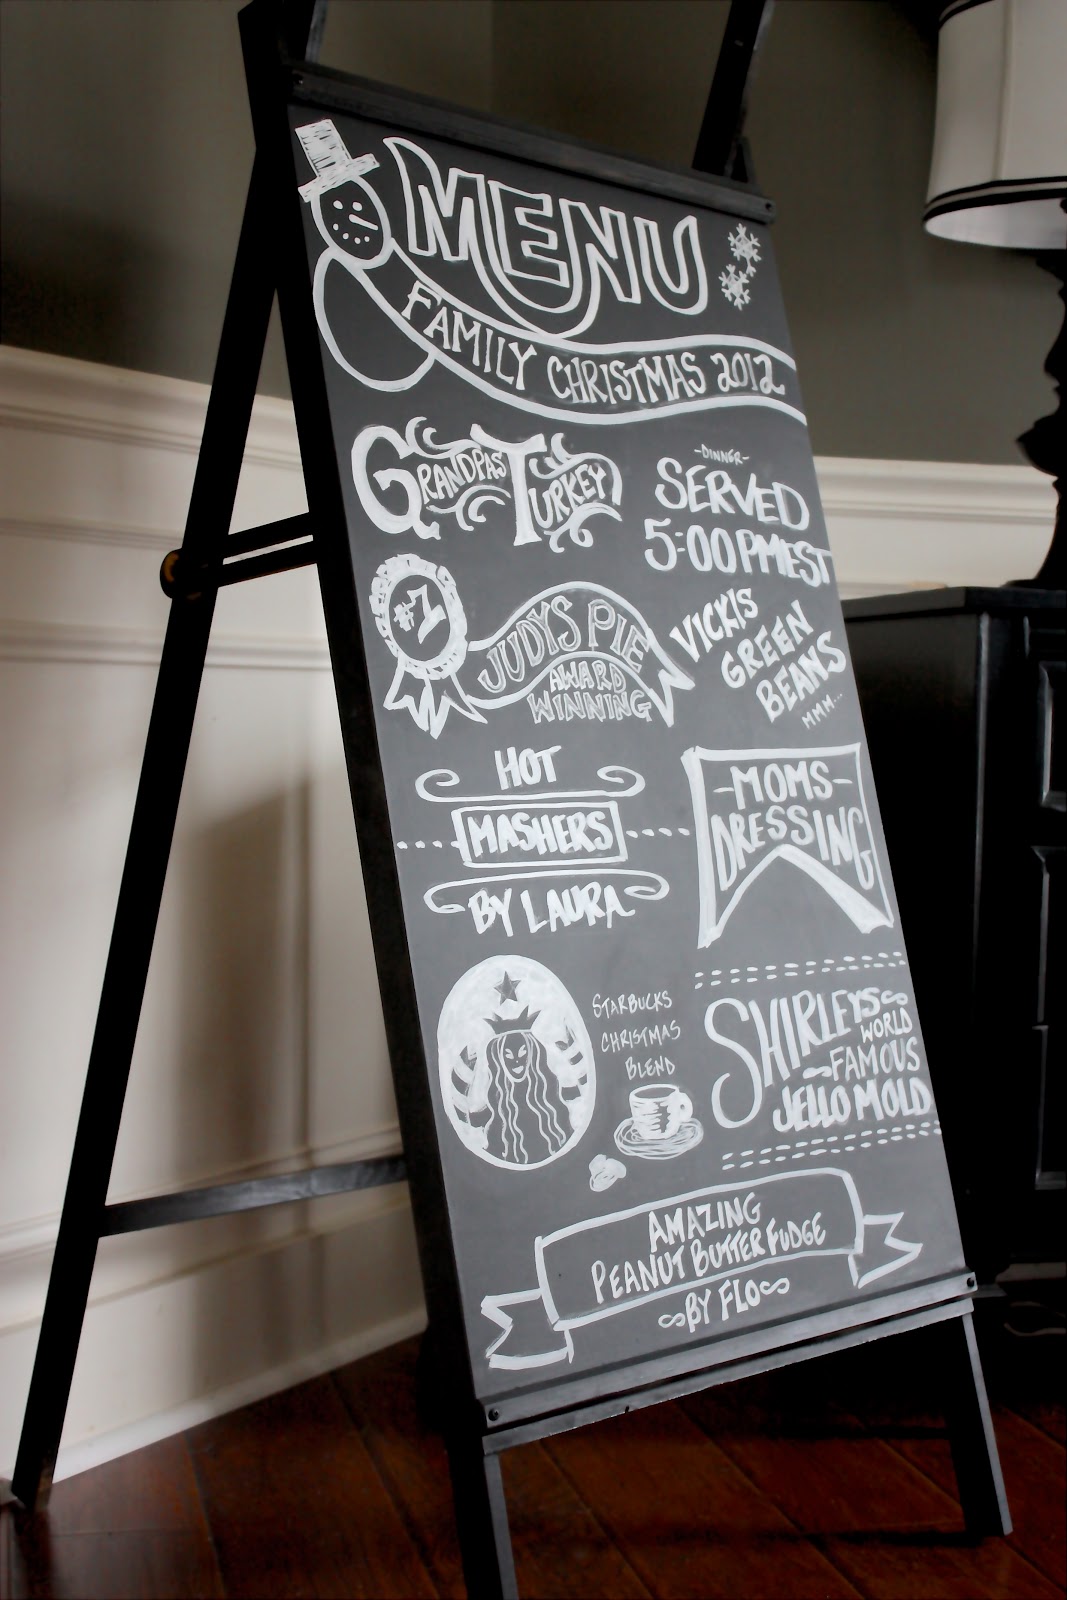 MENU
FAMILY CHRISTMAS 2012
GRANDPAS TURKEY
-DINNER-
SERVED
5:00 PM EST
#1
JUDYS PIE
AWARD
WINNING
VICKIS
GREEN
BEANS
MMM...
HOT
MASHERS
BY LAURA
-MOMS-
DRESSING
STARBUCKS
CHRISTMAS
BLEND
SHIRLEYS
WORLD
FAMOUS
JELLO MOLD
AMAZING
PEANUT BUTTER FUDGE
BY FLO